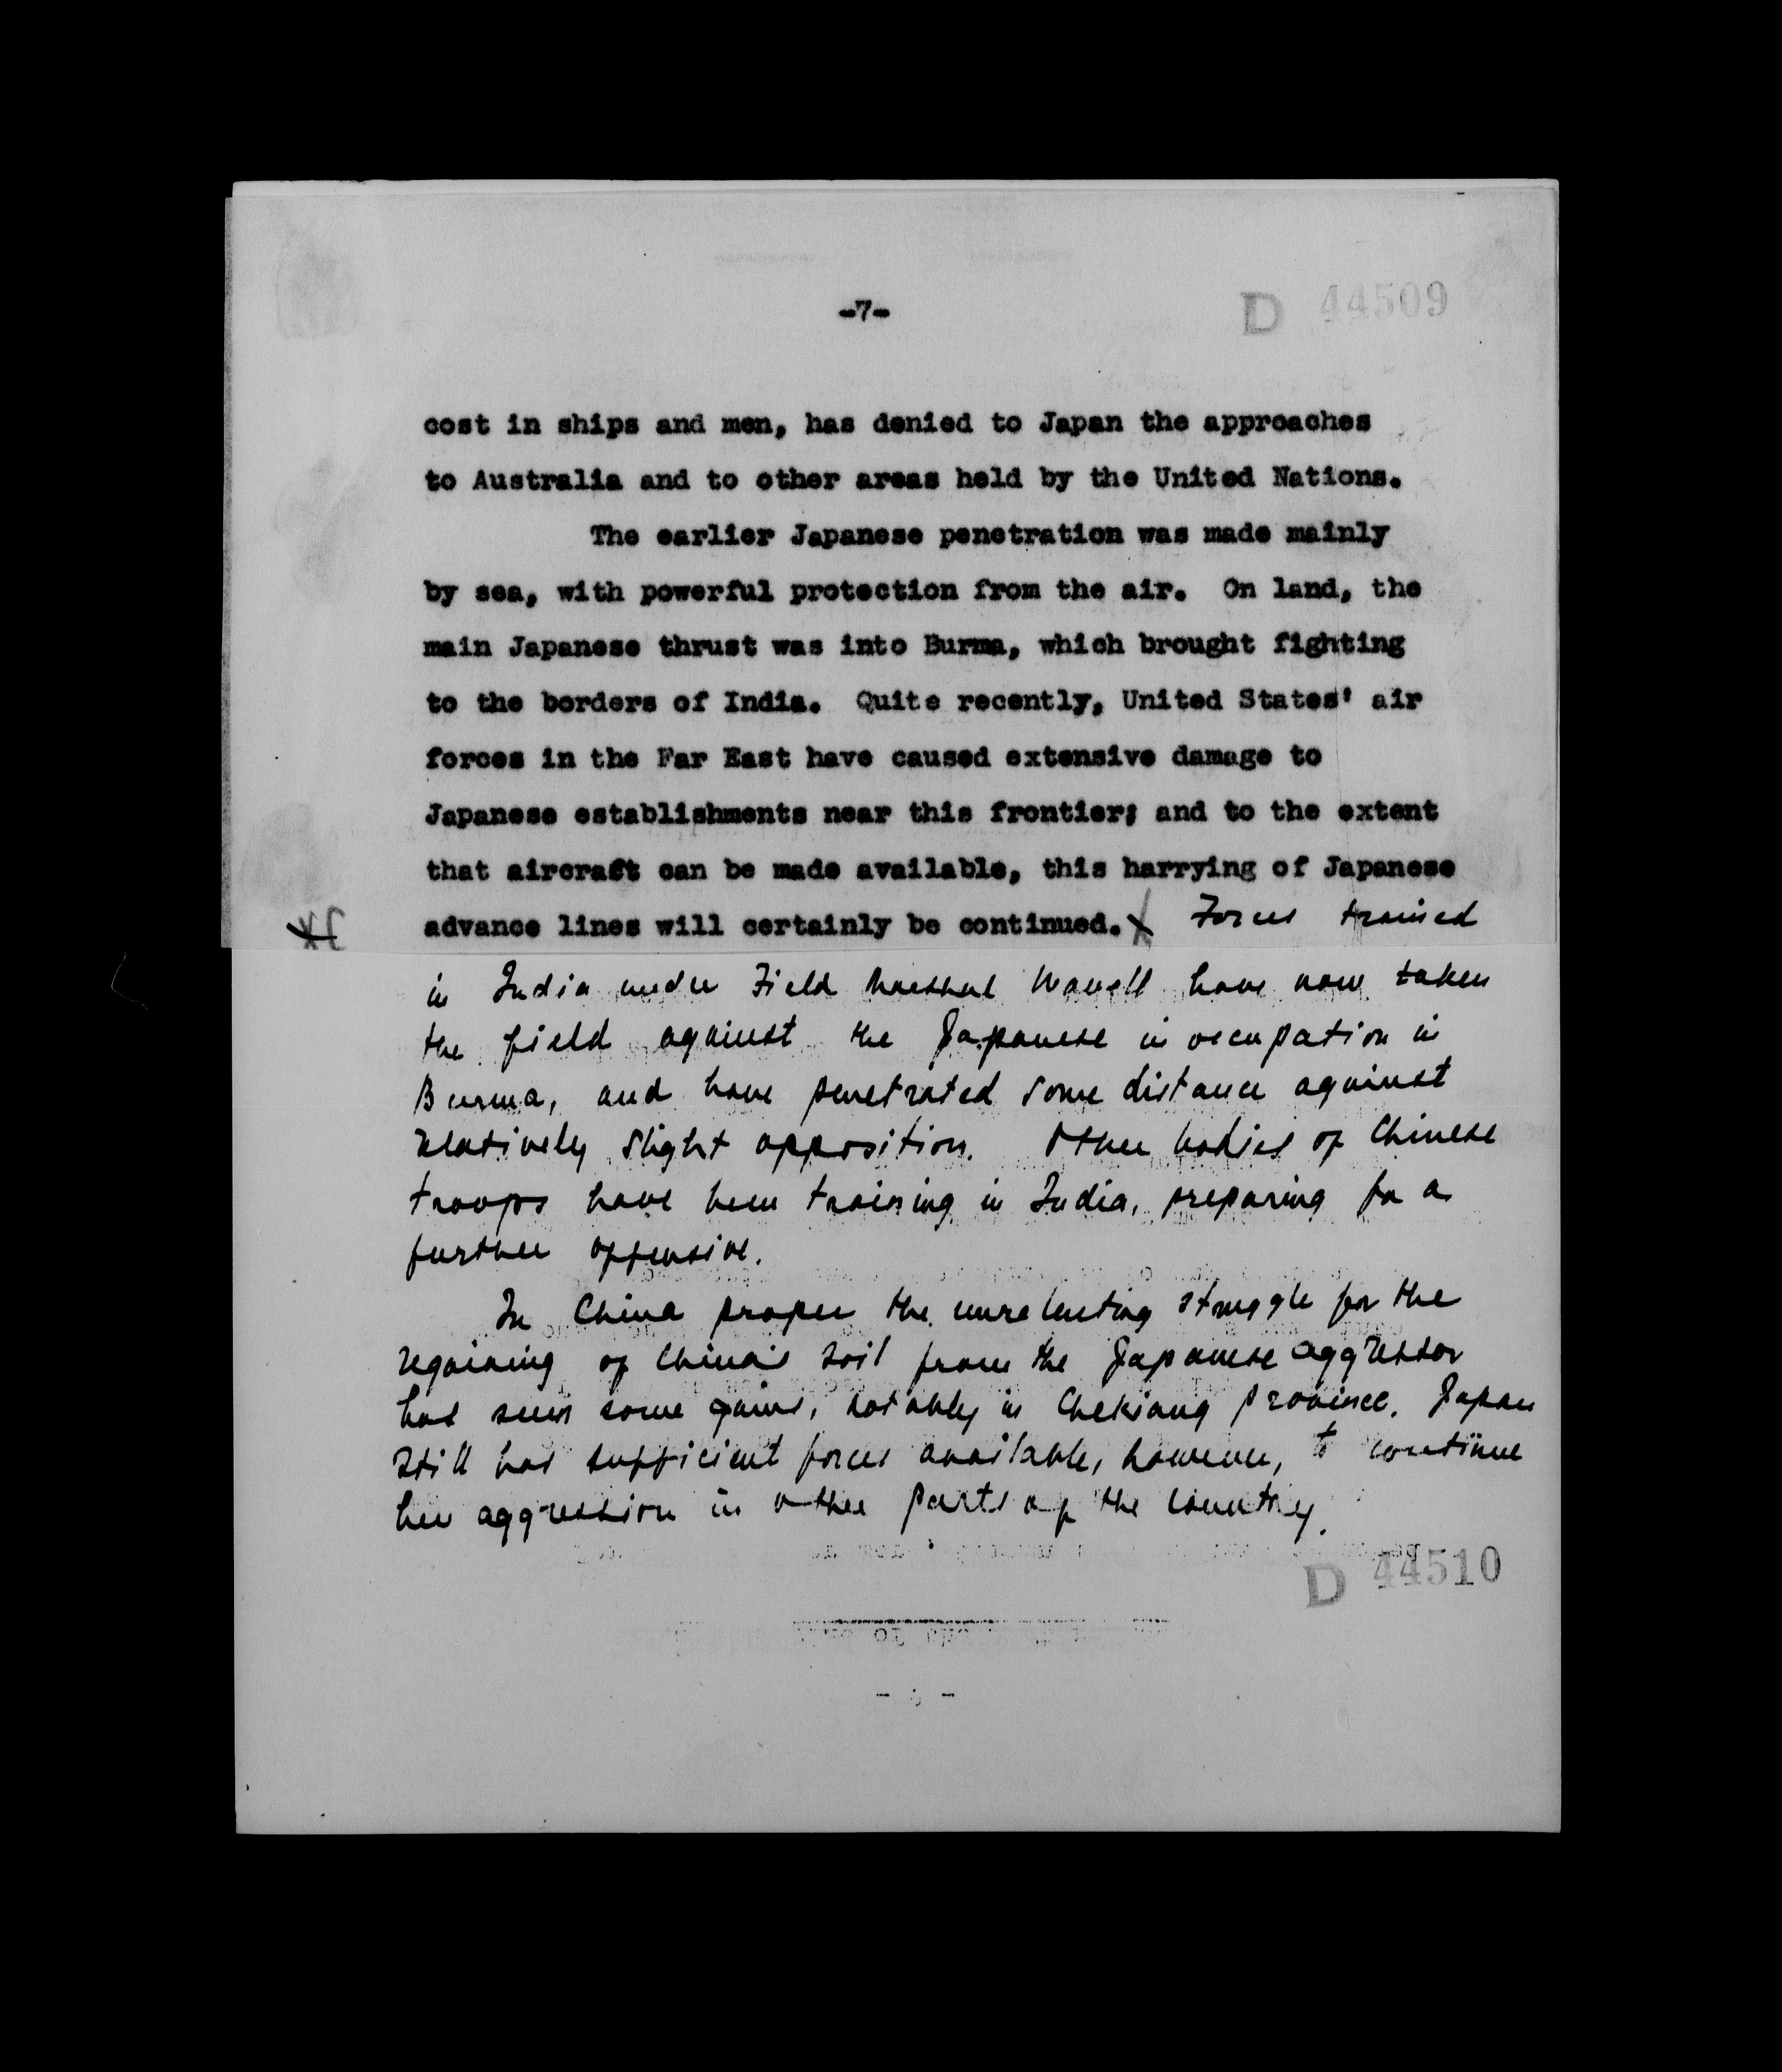 -7-
D 44509
cost in ships and men, has denied to Japan the approaches
to Australia and to other areas held by the United Nations.
The earlier Japanese penetration was made mainly
by sea, with powerful protection from the air. On land, the
main Japanese thrust was into Burma, which brought fighting
to the borders of India. Quite recently, United States' air
forces in the Far East have caused extensive damage to
Japanese establishments near this frontier; and to the extent
that aircraft can be made available, this harrying of Japanese
advance lines will certainly be continued. Forces trained
in India under Field Marshal Wavell have now taken
the field against the Japanese in occupation in
Burma, and have penetrated some distance against
relatively slight opposition. Other bodies of Chinese
troops have been training in India, preparing for a
further offensive.
In China proper the unrelenting struggle for the
regaining of China's soil from the Japanese aggressor
has seen some gains, notably in Chekiang Province. Japan
still has sufficient forces available, however, to continue
her aggression in other parts of the country.
D 44510